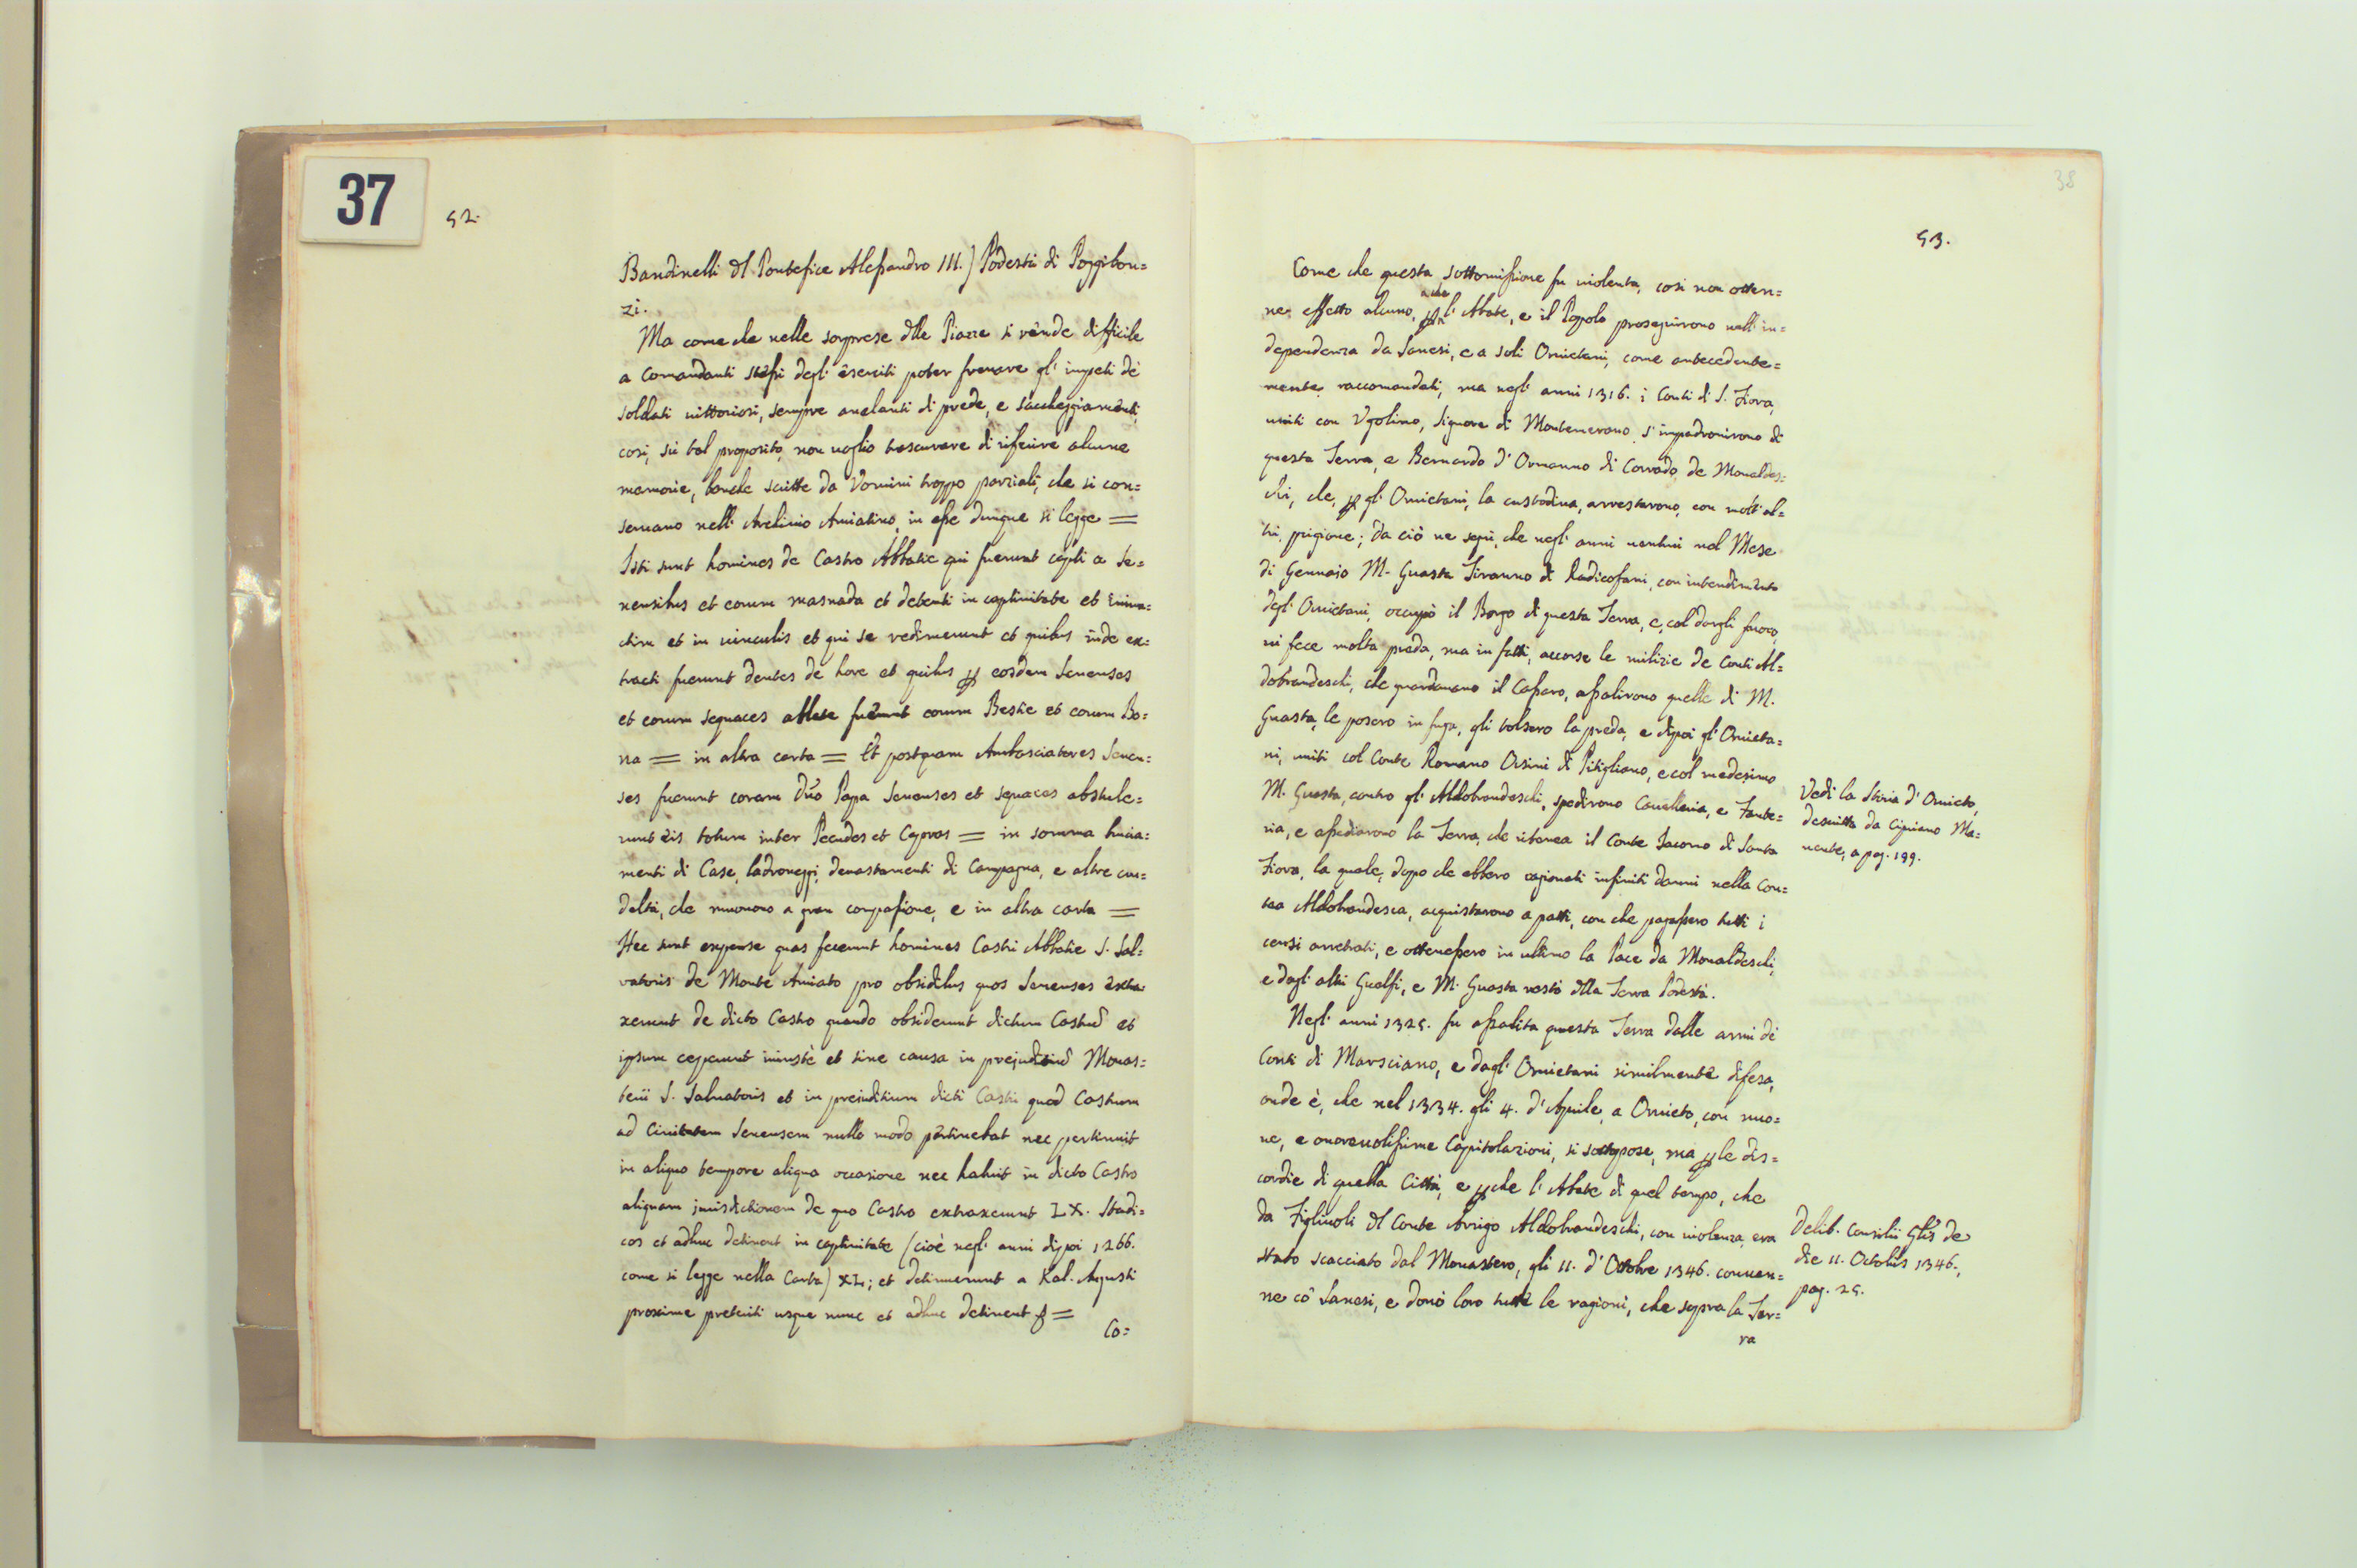 37
52.
Bandinelli dl Pontefice Alessandro III.) Podestà di Poggibon=
zi.
Ma come che nelle sorprese dlle Piazze si rende difficile
a Comandanti stessi degl' eserciti poter frenare gl' impeti de'
soldati vittoriosi, sempre anelanti di prede, e saccheggiamenti,
così, su tal proposito, non voglio trascurare di riferire alcune
memorie, benche scritte da Vomini troppo parziali, che si con=
servano nell' Archivio Amiatino, in esse dunque si legge =
Isti sunt homines de Castro Abbatie qui fuerunt capti a Se=
nensibus et eorum masnada et detenti in captivitate et
et in vinculis et qui se redimerunt et quibus inde ex=
tracti fuerunt dentes de hore et quibus p eosdem Senenses
et eorum sequaces ablate fuerunt eorum Bestie et eorum Bo=
na = in altra carta = Et postquam Ambasciatores Senen=
ses fuerunt coram Dño Papa Senenses et sequaces abstule=
runt eis totum inter Pecudes et Capras = in somma brucia=
menti di Case, ladroneggi, devastamenti di Campagna, e altre cru=
deltà, che muovono a gran compassione, e in altra carta =
Hec sunt expense quas fecerunt homines Castri Abbatie S. Sal=
vatoris de Monte Amiato pro obsidibus quos Senenses extra
xerunt de dicto Castro quando obsiderunt dictum Castrũ et
ipsum ceperunt iniustè et sine causa in prejuditiũ Monas=
terii S. Salvatoris et in preiuditium dicti Castri quod Castrum
ad Civitatem Senensem nullo modo pertinebat nec pertinuit
in aliquo tempore aliqua occasione nec habuit in dicto Castro
aliquam jurisdictionem de quo Castro extraxerunt LX. Stadi=
cos et adhuc detinent in captivitate (cioè negl' anni dipoi 1266.
come si legge nella Carta) XL; et detinuerunt a Kal. Augusti
proxime preteriti usque nunc et adhuc detinent &=
Co=
38
53.
Come che questa sottomissione fu violenta, così non otten=
ne effetto alcuno, p che l' Abate, e il Popolo proseguirono nell' in=
dependenza da Sanesi, e a soli Orvietani, come antecedente=
mente, raccomandati, ma negl' anni 1316. i Conti di S. Fiora,
uniti con Vgolino, Signore di Montemerano, s' impadronirono di
questa Terra, e Bernardo d' Ormanno di Corrado, de Monaldes=
chi, che, p gl' Orvietani, la custodiva, arrestarono, con molt' al=
tri, prigione; da ciò ne seguì, che negl' anni ventuni nel Mese
di Gennaio M. Guasta Tiranno di Radicofani, con intendimento
degl' Orvietani, occupò il Borgo di questa Terra, e, col dargli fuoco,
vi fece molta preda, ma in fatti, accorse le milizie de Conti Al=
dobrandeschi, che guardavano il Cassero, assalirono quelle di M.
Guasta, le posero in fuga, gli tolsero la preda, e dipoi gl' Orvieta=
ni, uniti col Conte Romano Orsini di Pitigliano, e col medesimo
M. Guasta, contro gl' Aldobrandeschi, spedirono Cavalleria, e Fante=
ria, e assediarono la Terra, che riteneva il Conte Iacomo di Santa
Fiora, la quale, dopo che ebbero cagionati infiniti danni nella Con=
tea Aldobrandesca, acquistarono a patti, con che pagassero tutti i
censi arretrati, e ottenessero in ultimo la Pace da Monaldeschi,
e dagl' altri Guelfi, e M. Guasta restò dlla Terra Podestà.
Vedi la Storia d' Orvieto,
descritta da Cipriano Ma=
nente, a pag. 199.
Negl' anni 1325. fu assalita questa Terra dalle armi de'
Conti di Marsciano, e dagl' Orvietani similmente difesa,
onde è, che nel 1334. gli 4. d' Aprile, a Orvieto, con nuo=
ve, e onorevolissime Capitolazioni, si sottopose, ma p le dis=
cordie di quella Città, e p che l' Abate di quel tempo, che
da Figliuoli dl Conte Arrigo Aldobrandeschi, con violenza, era
stato scacciato dal Monastero, gli 11. d' Ottobre 1346. conven=
ne cõ Sanesi, e donò loro tutte le ragioni, che sopra la Ter=
ra
Delib. Consilii Glis de
die 11. Octobris 1346.,
pag. 25.